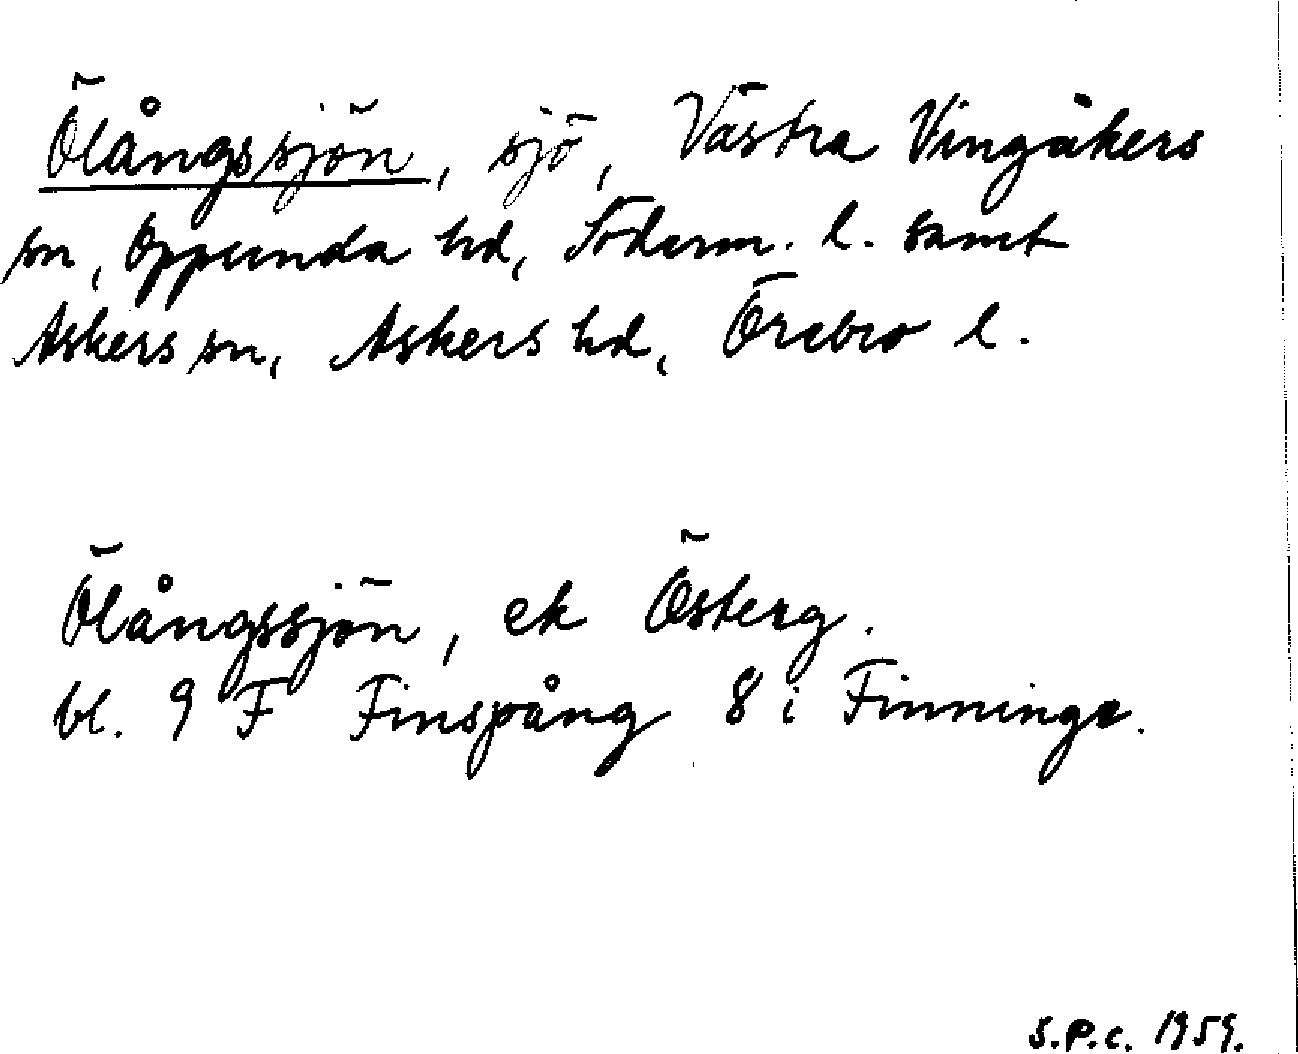 Ölångssjön, sjö, Västra Vingåkers
sn, Oppunda hd, Söderm. l. samt
Askers sn, Askers hd, Örebro l.
Ölångssjön, ek Österg.
bl. 9 F Finspång 8 i Finninge.
S.P.C. 1959.